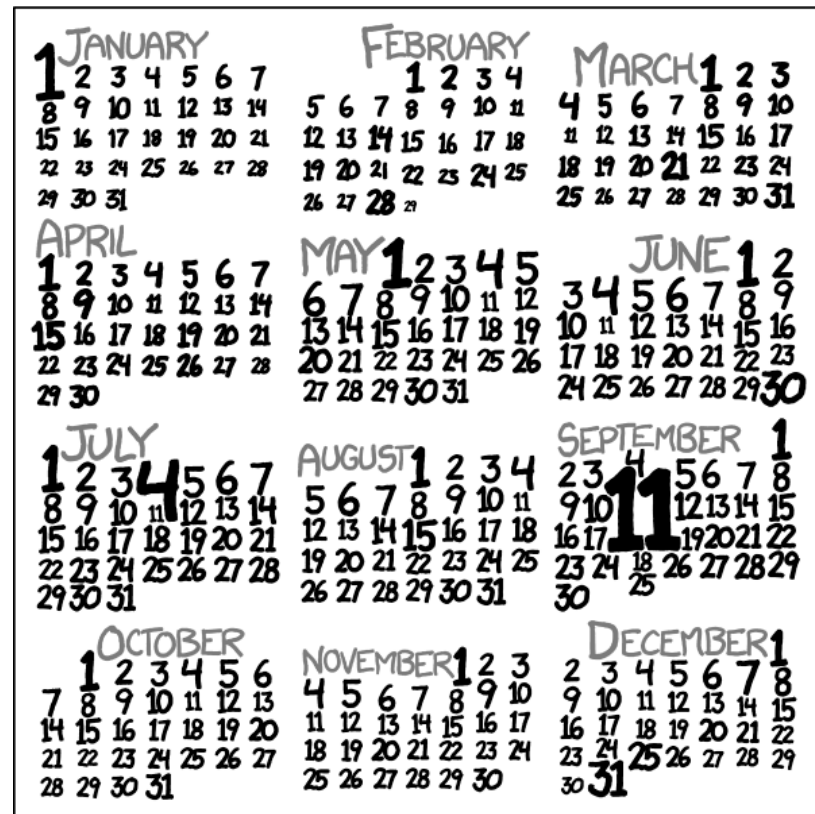 JANUARY
1 2 3 4 5 6 7
8 9 10 11 12 13 14
15 16 17 18 19 20 21
22 23 24 25 26 27 28
29 30 31
FEBRUARY
1 2 3 4
5 6 7 8 9 10 11
12 13 14 15 16 17 18
19 20 21 22 23 24 25
26 27 28 29
MARCH 1 2 3
4 5 6 7 8 9 10
11 12 13 14 15 16 17
18 19 20 21 22 23 24
25 26 27 28 29 30 31
APRIL
1 2 3 4 5 6 7
8 9 10 11 12 13 14
15 16 17 18 19 20 21
22 23 24 25 26 27 28
29 30
MAY 1 2 3 4 5
6 7 8 9 10 11 12
13 14 15 16 17 18 19
20 21 22 23 24 25 26
27 28 29 30 31
JUNE 1 2
3 4 5 6 7 8 9
10 11 12 13 14 15 16
17 18 19 20 21 22 23
24 25 26 27 28 29 30
JULY
1 2 3 4 5 6 7
8 9 10 11 12 13 14
15 16 17 18 19 20 21
22 23 24 25 26 27 28
29 30 31
AUGUST 1 2 3 4
5 6 7 8 9 10 11
12 13 14 15 16 17 18
19 20 21 22 23 24 25
26 27 28 29 30 31
SEPTEMBER 1
2 3 4 5 6 7 8
9 10 11 12 13 14 15
16 17 19 20 21 22
23 24 18 26 27 28 29
25
30
OCTOBER
1 2 3 4 5 6
7 8 9 10 11 12 13
14 15 16 17 18 19 20
21 22 23 24 25 26 27
28 29 30 31
NOVEMBER 1 2 3
4 5 6 7 8 9 10
11 12 13 14 15 16 17
18 19 20 21 22 23 24
25 26 27 28 29 30
DECEMBER 1
2 3 4 5 6 7 8
9 10 11 12 13 14 15
16 17 18 19 20 21 22
23 24 25 26 27 28 29
30 31